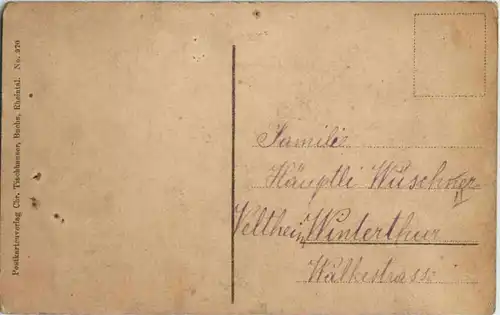 Postkartenverlag Chr. Tischhauser, Buchs, Rheintal. No. 270
Familie
Häuptli Wüscher
Veltheim Winterthur
Wülkestrass